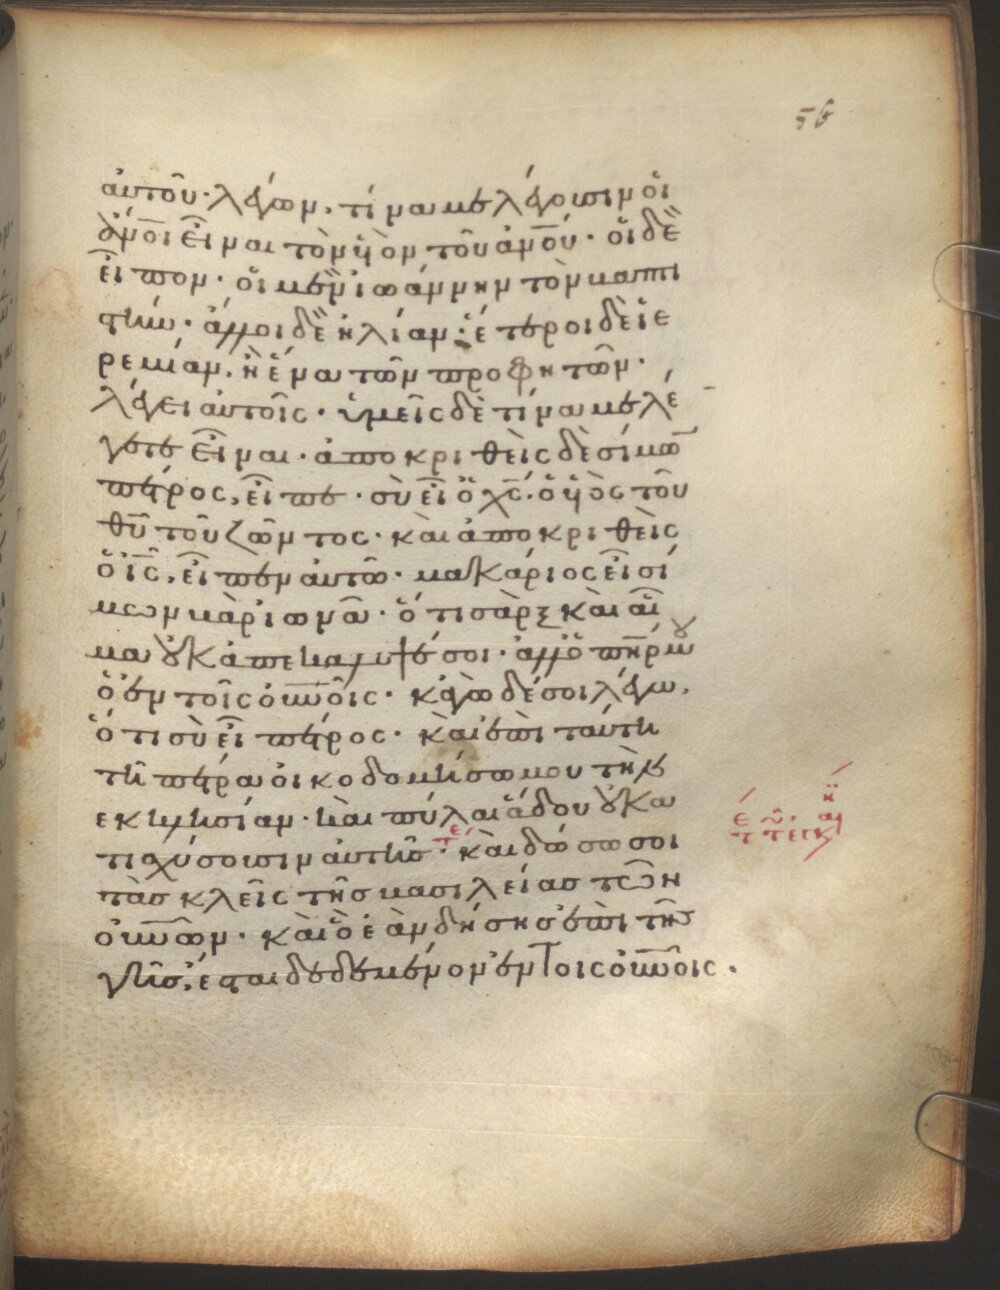 56
αὐτοῦ· λέγων, τί με λέγουσιν οἱ
ἄνοι εἶναι τὸν υἱὸν τοῦ ἀνου· οἱ δὲ
εἶπον· οἱ μὲν ἰωάννην τὸν βαπτι
στήν· ἄλλοι δὲ ἠλίαν· ἕτεροι δὲ ἱε
ρεμίαν, ἢ ἕνα τῶν προφητῶν·
λέγει αὐτοῖς· ὑμεῖς δὲ τίνα με λέ
γετε εἶναι· ἀποκριθεὶς δὲ σίμω
πέτρος, εἶπε· σὺ εἶ ὁ χς· ὁ υἱὸς τοῦ
θυ τοῦ ζῶντος· καὶ ἀποκριθεὶς
ὁ ις, εἶπεν αὐτῶ· μακάριος εἶ σί
μων βὰρ ἰωνᾶ· ὅτι σὰρξ καὶ αἷ
μα οὐκ ἀπεκάλυψέ σοι· ἀλλ' ὁ πηρ μου
ὁ ἐν τοῖς οὐνοῖς· κἀγὼ δέ σοι λέγω,
ὅτι σὺ εἶ πέτρος· καὶ ἐπὶ ταύτη
τῆ πέτρα οἰκοδομήσω μου τὴν
ἐκκλησίαν· καὶ πύλαι ἅδου οὐ κα
τισχύσουσιν αὐτῆς· καὶ δώσω σοι
τὰς κλεῖς τῆς βασιλείας τῶν
οὐνων· καὶ ὃ ἐὰν δήσης ἐπὶ τῆς
γῆς, ἔσται δεδεμένον ἐν τοῖς οὐνοῖς.